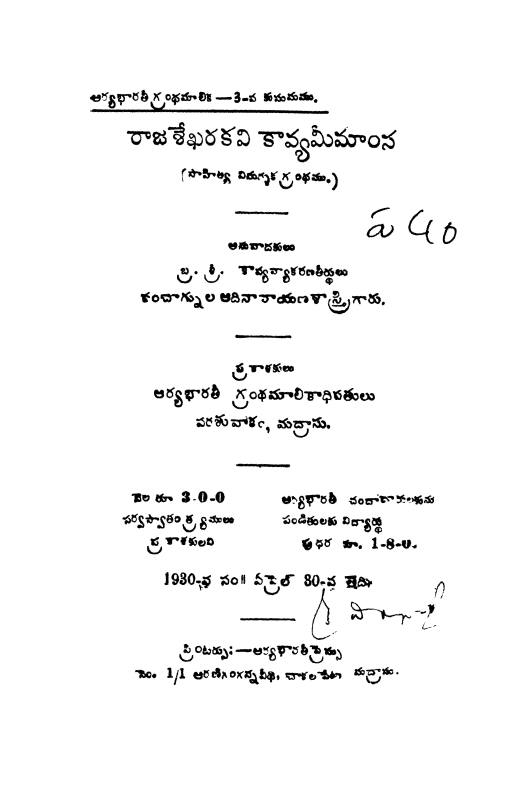 ఆర్యభారతీగ్రంథమాలిక — 3-వ కుసుమము.
రాజశేఖరకవి కావ్యమీమాంస
(సాహిత్య విమర్శక గ్రంథము.)
అనువాదకులు
బ్ర. శ్రీ. కావ్యవ్యాకరణతీర్థులు
కంచాగ్నుల ఆదినారాయణశాస్త్రిగారు.
ప్రకాశకులు
ఆర్యభారతీ గ్రంథమాలికాధిపతులు
పరశువాకం, మద్రాసు.
వెల రూ 3-0-0
సర్వస్వాతంత్ర్యములు
ప్రకాశకులవి
ఆర్యభారతీ చందాదారులకును
పండితులకు విద్యార్థు
రూ. 1-8-0.
1930-వ సం॥ ఏప్రిల్ 30-వ తేది
ప్రింటర్సు:—ఆర్యభారతీప్రెస్సు
నెం. 1/1 ఆరణిగంగన్నవీథి, చాకలపేట మద్రాసు.